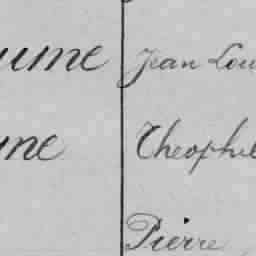 ume Jean Lou
me Theophil
Pierre